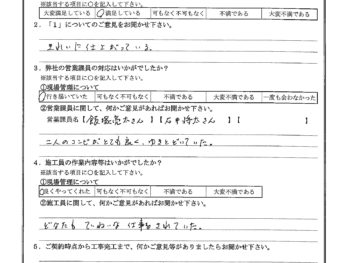 ※該当する項目に○を記入して下さい。
大変満足している ○満足している 可もなく不可もなく 不満である 大変不満である
2．「1」についてのご意見をお聞かせ下さい。
きれいに仕上がっている。
3．弊社の営業課員の対応はいかがでしたか？
※該当する項目に○を記入して下さい。
①現場管理について
○行き届いていた 可もなく不可もなく 不満である 大変不満である 一度も会わなかった
②営業課員に関して、何かご意見があればお聞かせ下さい。
営業課員名【飯塚亮太さん】【石中将太さん】【 】
二人のコンビがとても良く、ゆきとどいていた。
4．施工員の作業内容等はいかがでしたか？
※該当する項目に○を記入して下さい。
①現場管理について
○良くやってくれた 可もなく不可もなく 不満である 大変不満である
②施工員に関して、何かご意見がありましたらお聞かせ下さい。
どなたもていねいな仕事をされていた。
5．ご契約時点から工事完工まで、何かご意見等がありましたらお聞かせ下さい。